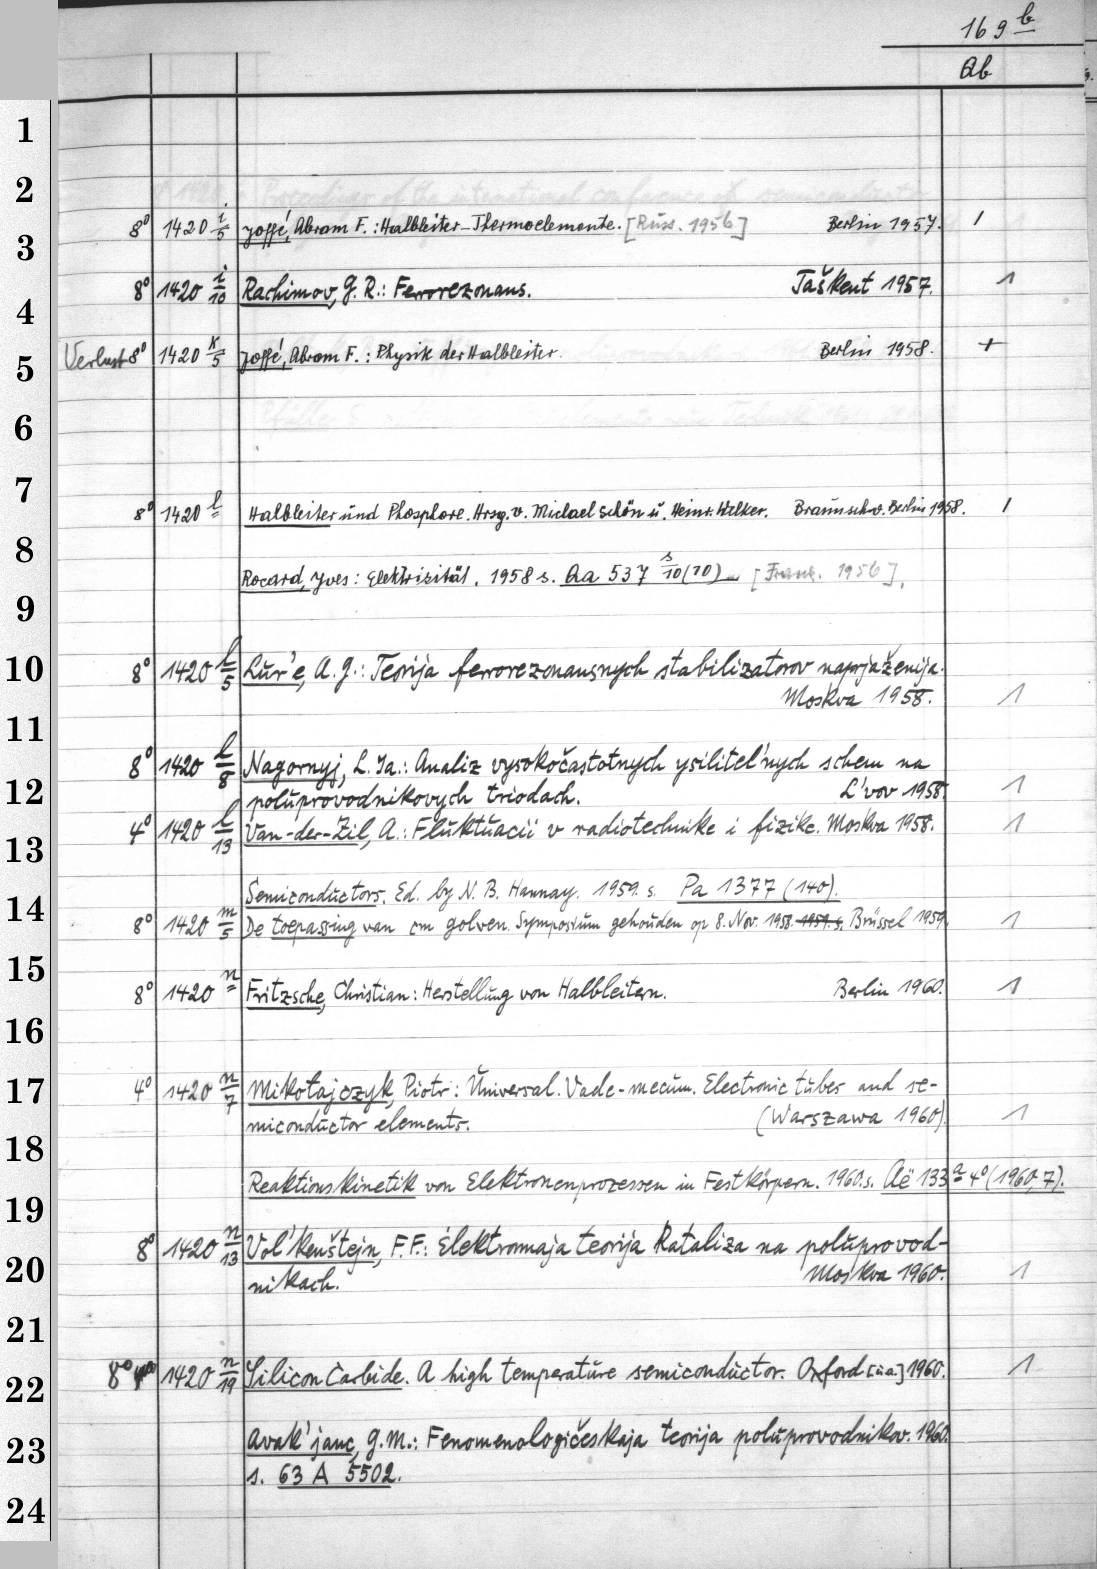 169 b
Ab
1
2
8° 1420 i/5 Joffé, Abram F.: Halbleiter-Thermoelemente. [Russ. 1956] Berlin 1957. 1
3
8° 1420 i/10 Rachimov, G. R.: Ferrorezonans. Taškent 1957. 1
4
Verlust 8° 1420 k/5 Joffé, Abram F.: Physik der Halbleiter. Berlin 1958. +
5
6
7
8° 1420 l Halbleiter und Phosphore. Hrsg. v. Michael Schön u. Heinr. Welker. Braunschw. Berlin 1958. 1
8
Rocard, Yves: Elektrizität. 1958 s. Aa 537 s/10 (10) [Franz. 1956].
9
10
8° 1420 l/5 Lur'e, A. G.: Teorija ferrorezonansnych stabilizatorov naprjaženija.
Moskva 1958. 1
11
8° 1420 l/8 Nagornyj, L. Ja.: Analiz vysokočastotnych ysilitel'nych schem na
12
poluprovodnikovych triodach. L'vov 1958. 1
4° 1420 l/13 Van-der-Zil, A.: Fluktuacii v radiotechnike i fizike. Moskva 1958. 1
13
Semiconductors. Ed. by N. B. Hannay. 1959. s. Pa 1377 (140).
14
8° 1420 m/5 De toepassing van cm golven. Symposium gehouden op 8. Nov. 1958. 1959. s. Brüssel 1959. 1
15
8° 1420 n Fritzsche, Christian: Herstellung von Halbleitern. Berlin 1960. 1
16
4° 1420 n/7 Mikołajczyk, Piotr: Universal. Vade-mecum. Electronic tubes and se-
17
miconductor elements. (Warszawa 1960). 1
18
Reaktionskinetik von Elektronenprozessen in Festkörpern. 1960. s. Aë 133 a 4° (1960, 7).
19
8° 1420 n/13 Vol'kenštejn, F. F.: Elektronnaja teorija kataliza na poluprovod-
20
nikach. Moskva 1960. 1
21
8° 4° 1420 n/19 Silicon Carbide. A high temperature semiconductor. Oxford [u.a.] 1960. 1
22
Avak'janc, G. M.: Fenomenologičeskaja teorija poluprovodnikov. 1960.
23
s. 63 A 5502.
24